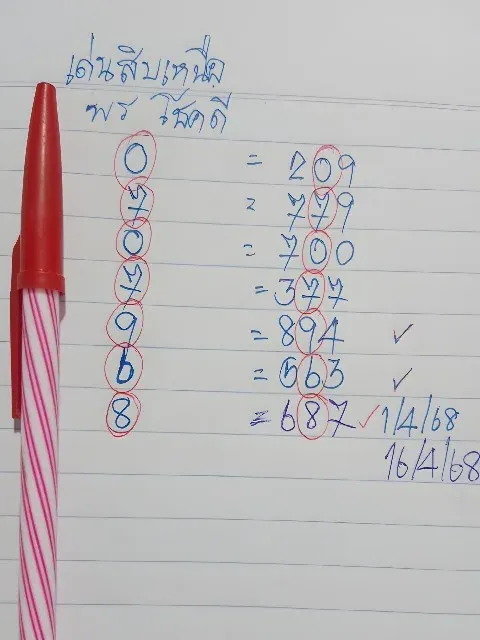 เด่นสิบเหนือ
พร โชคดี
0 = 209
7 = 779
0 = 700
7 = 377
9 = 894 ✓
6 = 563 ✓
8 = 687 ✓ 1/4/68
16/4/68